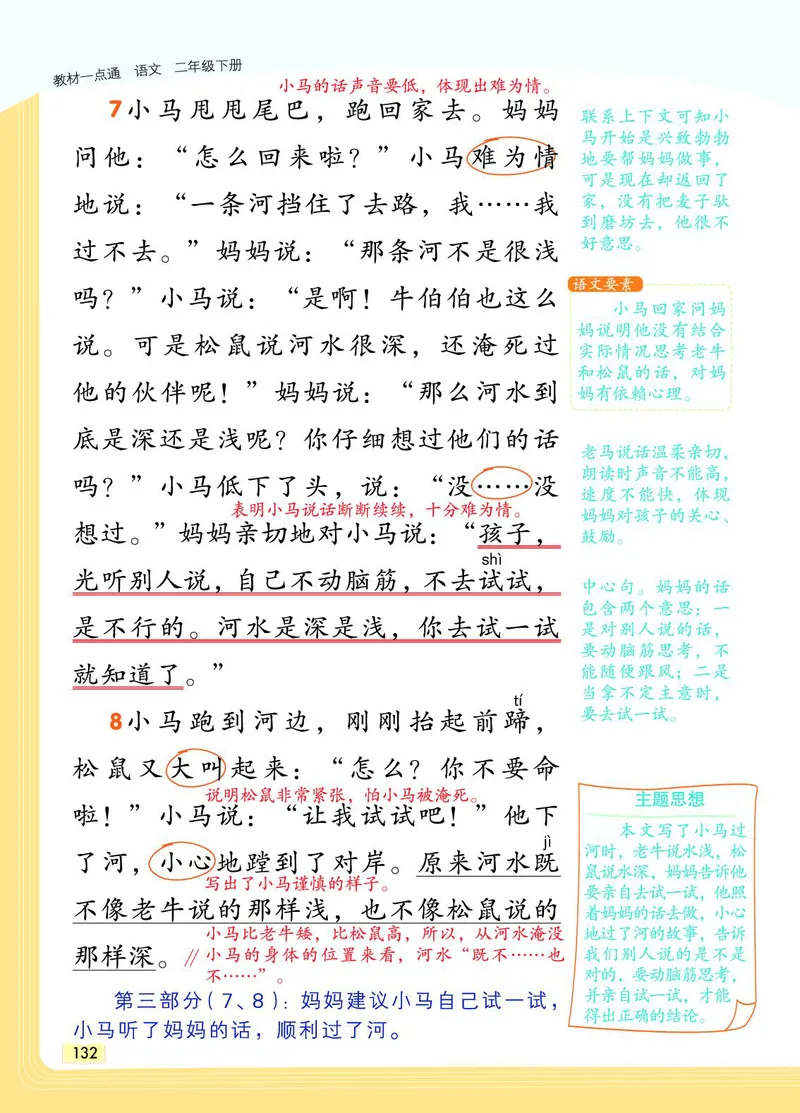 教材一点通 语文 二年级下册
小马的话声音要低，体现出难为情。
7小马甩甩尾巴，跑回家去。妈妈
问他：“怎么回来啦？”小马难为情
地说：“一条河挡住了去路，我……我
过不去。”妈妈说：“那条河不是很浅
吗？”小马说：“是啊！牛伯伯也这么
说。可是松鼠说河水很深，还淹死过
他的伙伴呢！”妈妈说：“那么河水到
底是深还是浅呢？你仔细想过他们的话
吗？”小马低下了头，说：“没……没
表明小马说话断断续续，十分难为情。
想过。”妈妈亲切地对小马说：“孩子，
shì
光听别人说，自己不动脑筋，不去试试，
是不行的。河水是深是浅，你去试一试
就知道了。”
tí
8小马跑到河边，刚刚抬起前蹄，
松鼠又大叫起来：“怎么？你不要命
说明松鼠非常紧张，怕小马被淹死。
啦！”小马说：“让我试试吧！”他下
jì
了河，小心地蹚到了对岸。原来河水既
写出了小马谨慎的样子。
不像老牛说的那样浅，也不像松鼠说的
小马比老牛矮，比松鼠高，所以，从河水淹没
那样深。//小马的身体的位置来看，河水“既不……也
不……”。
第三部分（7、8）：妈妈建议小马自己试一试，
小马听了妈妈的话，顺利过了河。
132
联系上下文可知小
马开始是兴致勃勃
地要帮妈妈做事，
可是现在却返回了
家，没有把麦子驮
到磨坊去，他很不
好意思。
语文要素
小马回家问妈
妈说明他没有结合
实际情况思考老牛
和松鼠的话，对妈
妈有依赖心理。
老马说话温柔亲切，
朗读时声音不能高，
速度不能快，体现
妈妈对孩子的关心、
鼓励。
中心句。妈妈的话
包含两个意思：一
是对别人说的话，
要动脑筋思考，不
能随便跟风；二是
当拿不定主意时，
要去试一试。
主题思想
本文写了小马过
河时，老牛说水浅，松
鼠说水深，妈妈告诉他
要亲自去试一试，他照
着妈妈的话去做，小心
地过了河的故事，告诉
我们别人说的是不是
对的，要动脑筋思考，
并亲自试一试，才能
得出正确的结论。